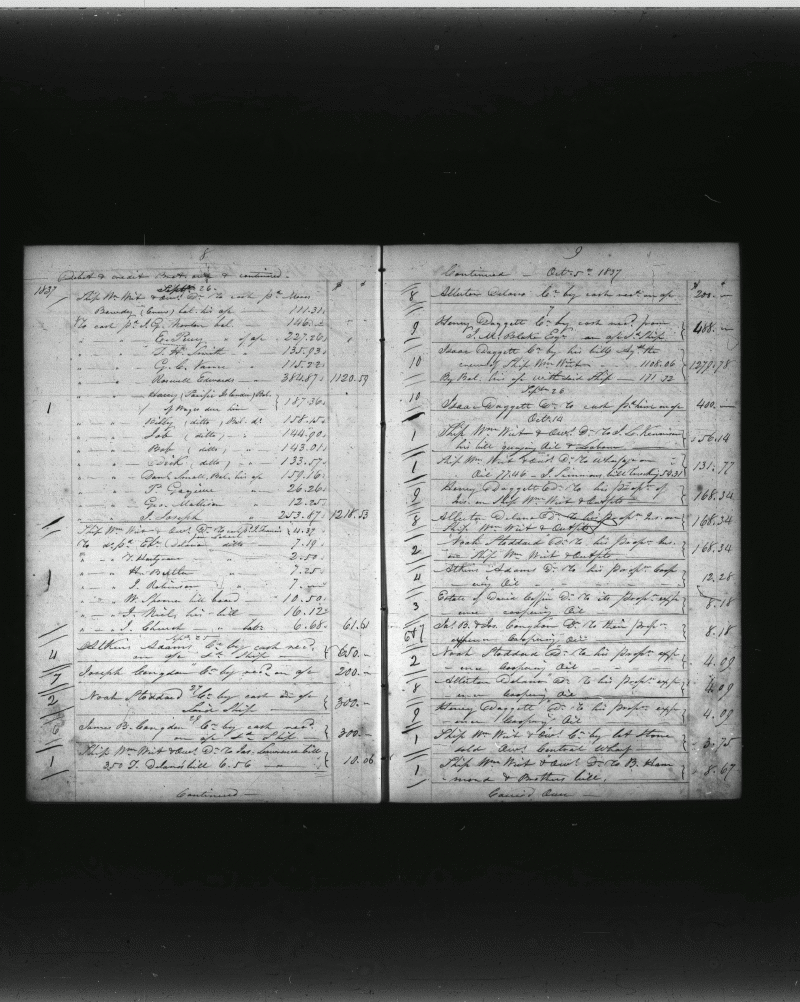 8
Debit & credit Brot over & continued.
1837 Sept. 26.
Ship Wm Wirt & Own's Dr. to cash pd. Moses
Barnday (Evans) bal. his a/c — 111.31
To cash pd. J. G. Thornton bal. — 146.
" — " — C. Perry " of a/c — 227.26
" — " — F. H. Smith — " — 135.93
" — " — G. C. — 115.22
" — " — Roswell Edwards — 384.87 1120.59
" — " — Harry (Pacific Islander) Bal.
of Wages due him — 187.36
1
" — " — Billy (ditto) Bal. do. 158.15
" — " — Job (ditto) " — 144.90
" — " — Bob (ditto) " — 143.01
" — " — (ditto) " — 133.57
" — " — Danl. Small, Bal. his a/c 159.16
" — " — P. " 26.26
" — " — Geo. Mathison " 12.25
" — " — J. Joseph " 253.87 1218.53
Ship Wm Wirt & Own's Dr. to 4.37
To do pd. Delano ditto 7.19
" — " — F. Hartgrave " 2.50
" — " — H. " 7.25
" — " — J. Robinson " 7. —
1
" — " — W. Spooner bill board — 10.50
" — " — J. his bill — 16.12
" — " — J. Church " labr 6.68 61.61
Sept. 25
4 Atkins Adams Cr. by cash recd.
on a/c Sd. Ship — 650. —
7 Joseph Congdon Cr. by recd. on a/c 200. —
2 Noah Stoddard Cr. by cash on a/c
Said Ship — 300. —
6 James B. Congdon Cr. by cash recd
on a/c Sd. Ship 300. —
1 Ship Wm Wirt & Own's Dr. to Jas. bill
3.50 T. Delano's bill 6.56 — 10.06
Continued —
9
Continued — Oct. 5th 1837
8 Allerton Delano Cr. by cash recd. on a/c 200. —
9 Henry Daggett Cr. by cash recd. from
J. M. Blake Esqr. on a/c Sd. Ship 488. —
Isaac Daggett Cr. by his bills agt. the
10 owners of Ship Wm Wirt on — 1108.06 1279.78
By Bal. his a/c with said Ship — 171.72
Sept. 26
10 Isaac Daggett Dr. to cash pd. him on a/c 400. —
Oct. 14
1 Ship Wm Wirt & Own's Dr. to J. L.
his bill gauging Oil & Labour — 56.14
1 Ship Wm Wirt & Own's Dr. to Wharfage on
Oil 77.46 — J. Simmons bill trucking 54.31 131.77
9 Henry Daggett Dr. to his propn. of
Ins. on Ship Wm Wirt & Outfits — 168.34
8 Allerton Delano Dr. to his propn. Ins. on
Ship Wm Wirt & Outfits 168.34
2 Noah Stoddard Dr. to his propn. Ins.
on Ship Wm Wirt & Outfits 168.34
4 Atkins Adams Dr. to his propn. Coop
ering Oil — 12.28
3 Estate of David Coffin Dr. to its propn. exp
ence coopering Oil 8.18
6&7 Jas. B. & Jos. Congdon Dr. to their propn.
expences Coopering Oil 8.18
2 Noah Stoddard Dr. to his propn. exp
ence Coopering Oil — 4.09
8 Allerton Delano Dr. to his propn. exp
ence Cooping Oil — 4.09
9 Henry Daggett Dr. to his propn. exp
ence Cooping Oil 4.09
1 Ship Wm Wirt & Own's Cr. by lot Stone
sold Own's Central Wharf — 3.75
1 Ship Wm Wirt & Own's Dr. to B. Ham
mond & Brothers bill, 8.67
Carried Over